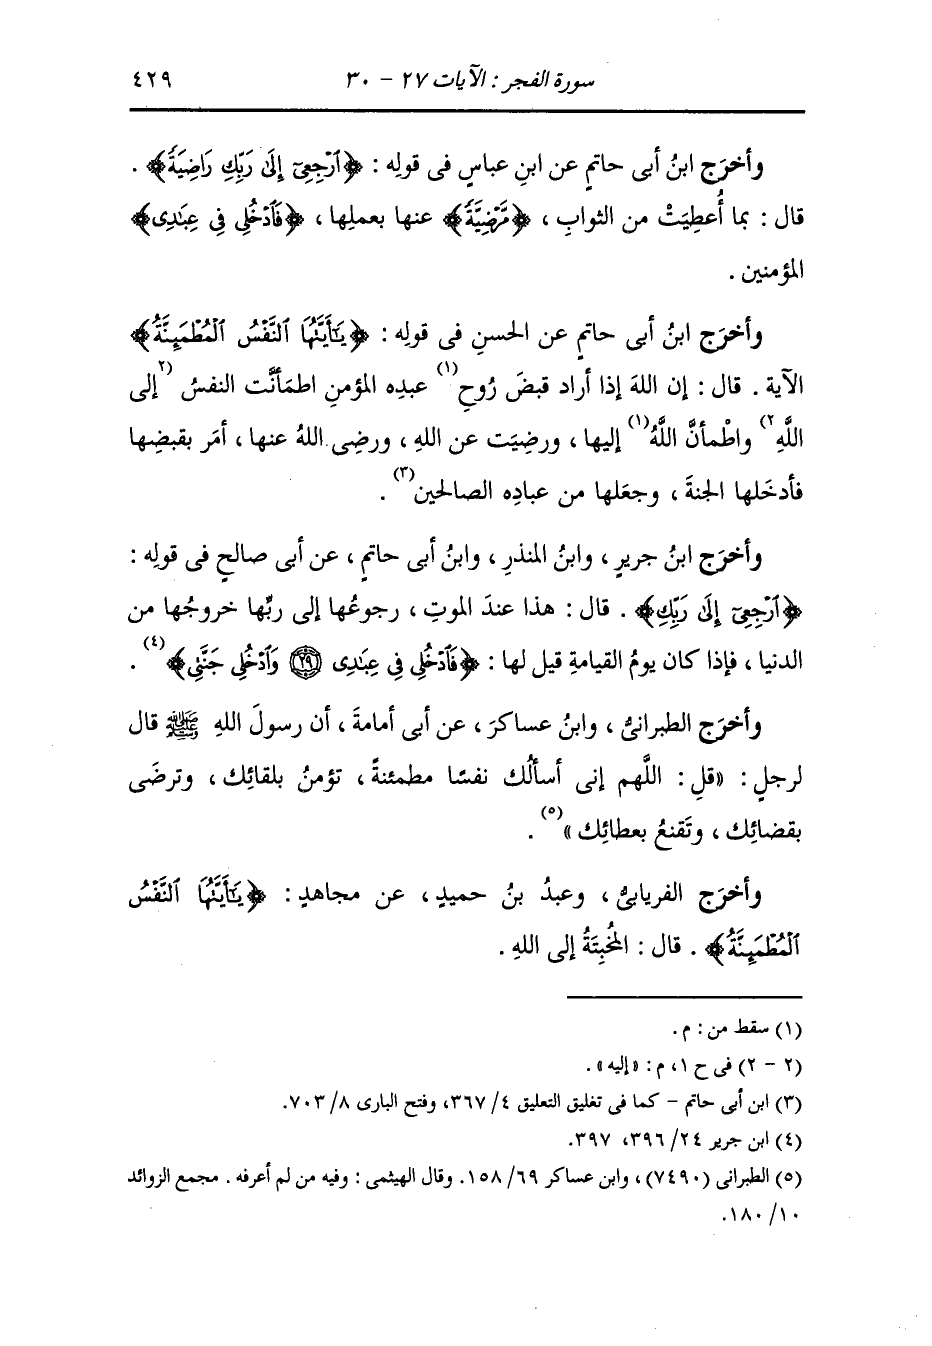 سورة الفجر : الآيات ٢٧ - ٣٠ ٤٢٩
وأخرَج ابنُ أبى حاتمٍ عن ابنِ عباسٍ فى قولِه : ﴿ٱرْجِعِىٓ إِلَىٰ رَبِّكِ رَاضِيَةً﴾ .
قال : بما أُعطِيَتْ من الثوابِ ، ﴿مَّرْضِيَّةً﴾ عنها بعملِها ، ﴿فَٱدْخُلِى فِى عِبَٰدِى﴾
المؤمنين .
وأخرَج ابنُ أبى حاتمٍ عن الحسنِ فى قولِه : ﴿يَٰٓأَيَّتُهَا ٱلنَّفْسُ ٱلْمُطْمَئِنَّةُ﴾
الآية . قال : إن اللهَ إذا أراد قبضَ رُوحِ(١) عبدِه المؤمنِ اطمَأنَّت النفسُ (٢إلى
اللَّهِ٢) واطْمأنَّ اللَّهُ(١) إليها ، ورضِيَت عن اللهِ ، ورضِى اللهُ عنها ، أمَر بقبضِها
فأدخَلها الجنةَ ، وجعَلها من عبادِه الصالحين(٣) .
وأخرَج ابنُ جريرٍ ، وابنُ المنذرِ ، وابنُ أبى حاتمٍ ، عن أبى صالحٍ فى قولِه :
﴿ٱرْجِعِىٓ إِلَىٰ رَبِّكِ﴾ . قال : هذا عندَ الموتِ ، رجوعُها إلى ربِّها خروجُها من
الدنيا ، فإذا كان يومُ القيامةِ قيل لها : ﴿فَٱدْخُلِى فِى عِبَٰدِى ٢٩ وَٱدْخُلِى جَنَّتِى﴾(٤) .
وأخرَج الطبرانىُّ ، وابنُ عساكرَ ، عن أبى أمامةَ ، أن رسولَ اللهِ ﷺ قال
لرجلٍ : «قلِ : اللَّهم إنى أسألُك نفسًا مطمئنةً ، تؤمنُ بلقائِك ، وترضَى
بقضائِك ، وتَقنعُ بعطائِك»(٥) .
وأخرَج الفريابىُّ ، وعبدُ بنُ حميدٍ ، عن مجاهدٍ : ﴿يَٰٓأَيَّتُهَا ٱلنَّفْسُ
ٱلْمُطْمَئِنَّةُ﴾ . قال : المُخبِتَةُ إلى اللهِ .
(١) سقط من : م .
(٢ - ٢) فى ح ١، م : «إليه» .
(٣) ابن أبى حاتم - كما فى تغليق التعليق ٤/ ٣٦٧، وفتح البارى ٨/ ٧٠٣.
(٤) ابن جرير ٢٤/ ٣٩٦، ٣٩٧.
(٥) الطبرانى (٧٤٩٠) ، وابن عساكر ٦٩/ ١٥٨. وقال الهيثمى : وفيه من لم أعرفه . مجمع الزوائد
١٠/ ١٨٠.